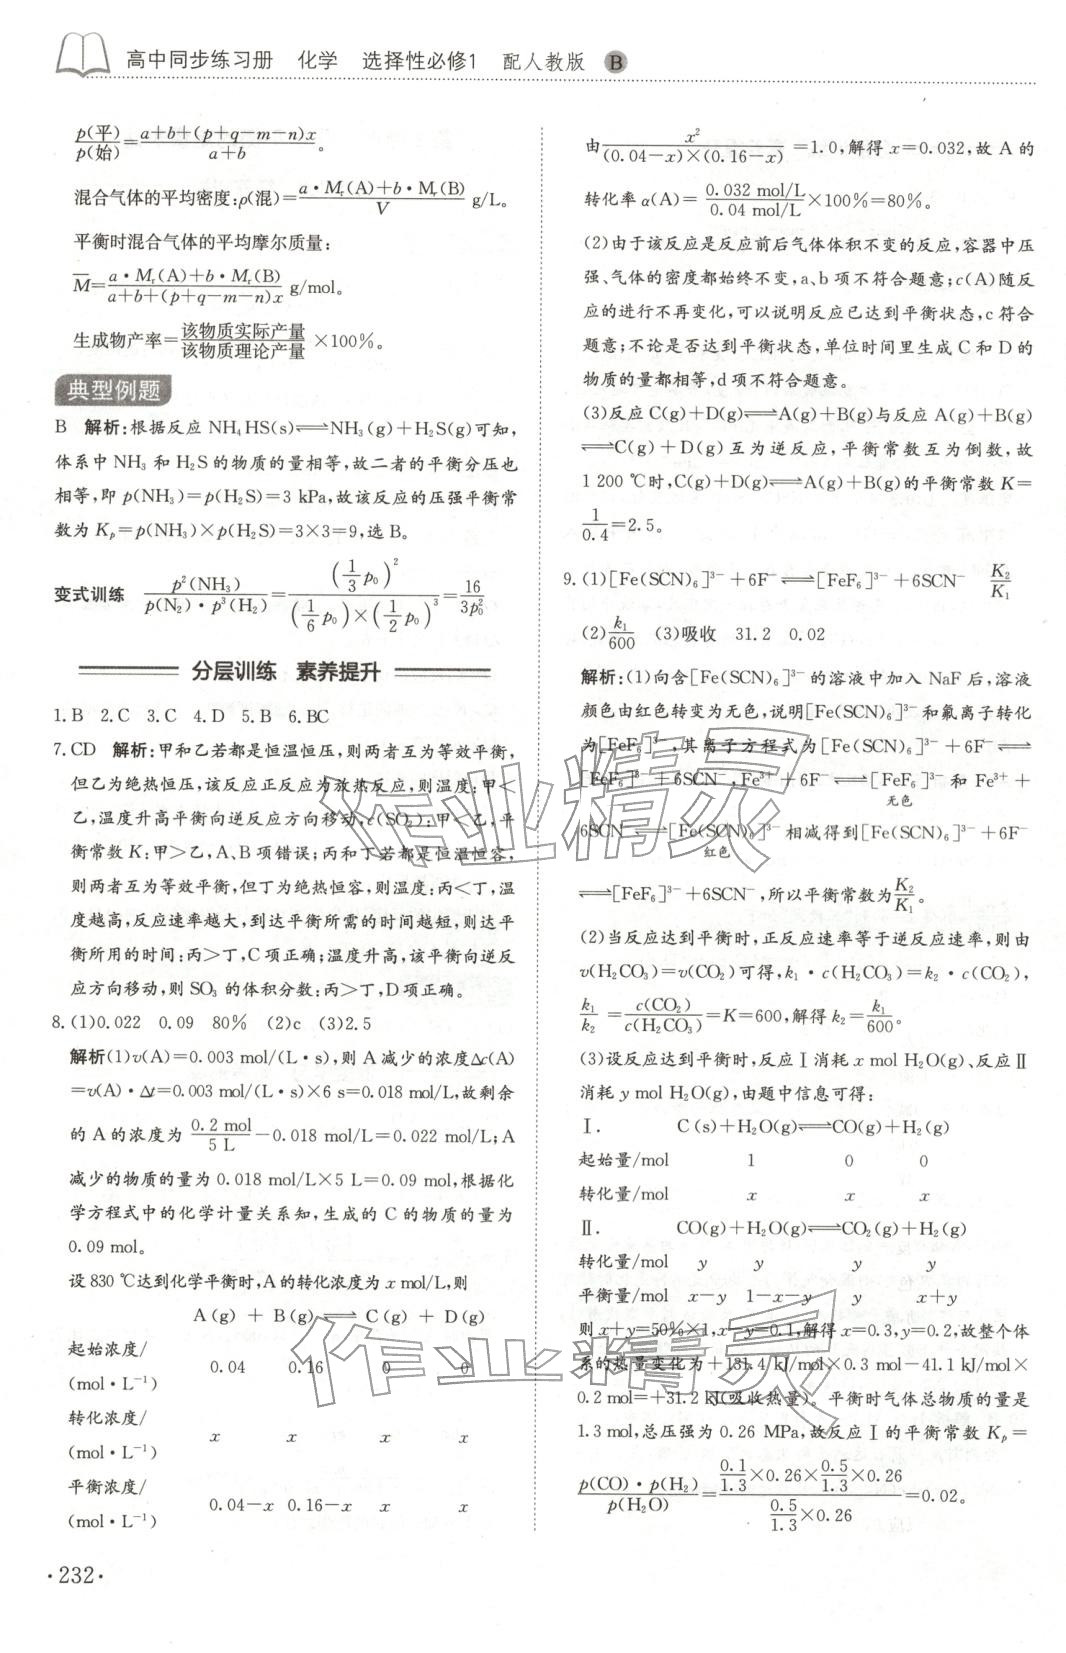 高中同步练习册 化学 选择性必修1 配人教版 B
p(平)/p(始)=a+b+(p+q-m-n)x/a+b。
混合气体的平均密度:ρ(混)=a·Mr(A)+b·Mr(B)/V g/L。
平衡时混合气体的平均摩尔质量:
M̅=a·Mr(A)+b·Mr(B)/a+b+(p+q-m-n)x g/mol。
生成物产率=该物质实际产量/该物质理论产量×100%。
典型例题
B 解析:根据反应 NH₄HS(s)⇌NH₃(g)+H₂S(g)可知,
体系中 NH₃ 和 H₂S 的物质的量相等,故二者的平衡分压也
相等,即 p(NH₃)=p(H₂S)=3 kPa,故该反应的压强平衡常
数为 Kₚ=p(NH₃)×p(H₂S)=3×3=9,选 B。
变式训练 p²(NH₃)/p(N₂)·p³(H₂)=(1/3 p₀)²/(1/6 p₀)×(1/2 p₀)³=16/3p₀²
分层训练 素养提升
1.B 2.C 3.C 4.D 5.B 6.BC
7.CD 解析:甲和乙若都是恒温恒压,则两者互为等效平衡,
但乙为绝热恒压,该反应正反应为放热反应,则温度:甲<
乙,温度升高平衡向逆反应方向移动,c(SO₂):甲<乙,平
衡常数 K:甲>乙,A、B 项错误;丙和丁若都是恒温恒容,
则两者互为等效平衡,但丁为绝热恒容,则温度:丙<丁,温
度越高,反应速率越大,到达平衡所需的时间越短,则达平
衡所用的时间:丙>丁,C 项正确;温度升高,该平衡向逆反
应方向移动,则 SO₃ 的体积分数:丙>丁,D 项正确。
8.(1)0.022 0.09 80% (2)c (3)2.5
解析(1)v(A)=0.003 mol/(L·s),则 A 减少的浓度Δc(A)
=v(A)·Δt=0.003 mol/(L·s)×6 s=0.018 mol/L,故剩余
的 A 的浓度为 0.2 mol/5 L-0.018 mol/L=0.022 mol/L;A
减少的物质的量为 0.018 mol/L×5 L=0.09 mol,根据化
学方程式中的化学计量关系知,生成的 C 的物质的量为
0.09 mol。
设 830 ℃达到化学平衡时,A 的转化浓度为 x mol/L,则
A(g) + B(g)⇌ C(g) + D(g)
起始浓度/
(mol·L⁻¹) 0.04 0.16 0 0
转化浓度/
(mol·L⁻¹) x x x x
平衡浓度/
(mol·L⁻¹) 0.04-x 0.16-x x x
·232·
由x²/(0.04-x)×(0.16-x)=1.0,解得 x=0.032,故 A 的
转化率 α(A)=0.032 mol/L/0.04 mol/L×100%=80%。
(2)由于该反应是反应前后气体体积不变的反应,容器中压
强、气体的密度都始终不变,a、b 项不符合题意;c(A)随反
应的进行不再变化,可以说明反应已达到平衡状态,c 符合
题意;不论是否达到平衡状态,单位时间里生成 C 和 D 的
物质的量都相等,d 项不符合题意。
(3)反应 C(g)+D(g)⇌A(g)+B(g)与反应 A(g)+B(g)
⇌C(g)+D(g)互为逆反应,平衡常数互为倒数,故
1 200 ℃时,C(g)+D(g)⇌A(g)+B(g)的平衡常数 K=
1/0.4=2.5。
9.(1)[Fe(SCN)₆]³⁻+6F⁻⇌[FeF₆]³⁻+6SCN⁻ K₂/K₁
(2)k₁/600 (3)吸收 31.2 0.02
解析:(1)向含[Fe(SCN)₆]³⁻的溶液中加入 NaF 后,溶液
颜色由红色转变为无色,说明[Fe(SCN)₆]³⁻和氟离子转化
为[FeF₆]³⁻,其离子方程式为[Fe(SCN)₆]³⁻+6F⁻⇌
[FeF₆]³⁻+6SCN⁻,Fe³⁺+6F⁻⇌[FeF₆]³⁻和 Fe³⁺+
无色
6SCN⁻⇌[Fe(SCN)₆]³⁻相减得到[Fe(SCN)₆]³⁻+6F⁻
红色
⇌[FeF₆]³⁻+6SCN⁻,所以平衡常数为K₂/K₁。
(2)当反应达到平衡时,正反应速率等于逆反应速率,则由
v(H₂CO₃)=v(CO₂)可得,k₁·c(H₂CO₃)=k₂·c(CO₂),
k₁/k₂=c(CO₂)/c(H₂CO₃)=K=600,解得 k₂=k₁/600。
(3)设反应达到平衡时,反应Ⅰ消耗 x mol H₂O(g)、反应Ⅱ
消耗 y mol H₂O(g),由题中信息可得:
Ⅰ. C(s)+H₂O(g)⇌CO(g)+H₂(g)
起始量/mol 1 0 0
转化量/mol x x x
Ⅱ. CO(g)+H₂O(g)⇌CO₂(g)+H₂(g)
转化量/mol y y y y
平衡量/mol x-y 1-x-y y x+y
则 x+y=50%×1,x-y=0.1,解得 x=0.3,y=0.2,故整个体
系的热量变化为+131.4 kJ/mol×0.3 mol-41.1 kJ/mol×
0.2 mol=+31.2 kJ(吸收热量)。平衡时气体总物质的量是
1.3 mol,总压强为 0.26 MPa,故反应Ⅰ的平衡常数 Kₚ=
p(CO)·p(H₂)/p(H₂O)=0.1/1.3×0.26×0.5/1.3×0.26/0.5/1.3×0.26=0.02。
作业精灵
作业精灵